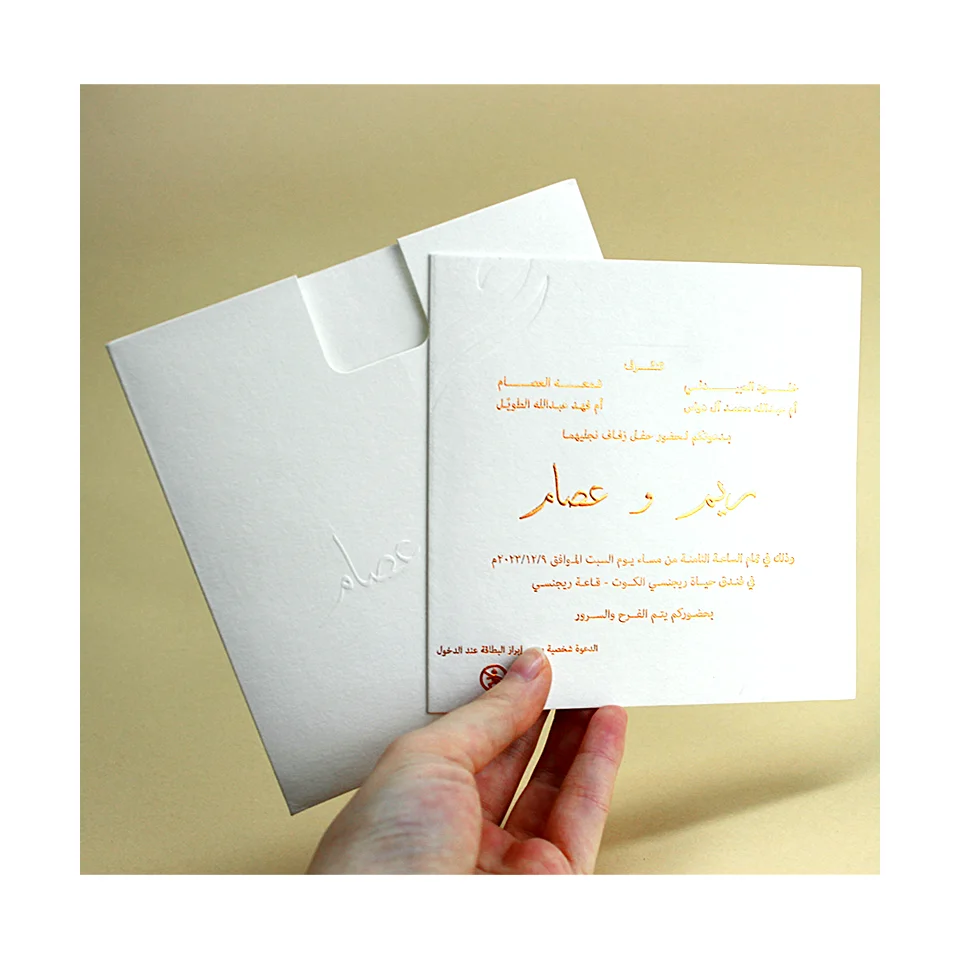 تتشرف
شعمــة العصــام
أم فهد عبدالله الطويّل
بدعوتكم لحضور حفل زفاف نجليهما
ريم و عصام
وذلك في تمام الساعة الثامنة من مساء يوم السبت الموافق ٢٠٢٣/١٢/٩م
في فندق حياة ريجنسي الكوت - قاعة ريجنسي
بحضوركم يتم الفرح والسرور
الدعوة شخصية إبراز البطاقة عند الدخول
عصام